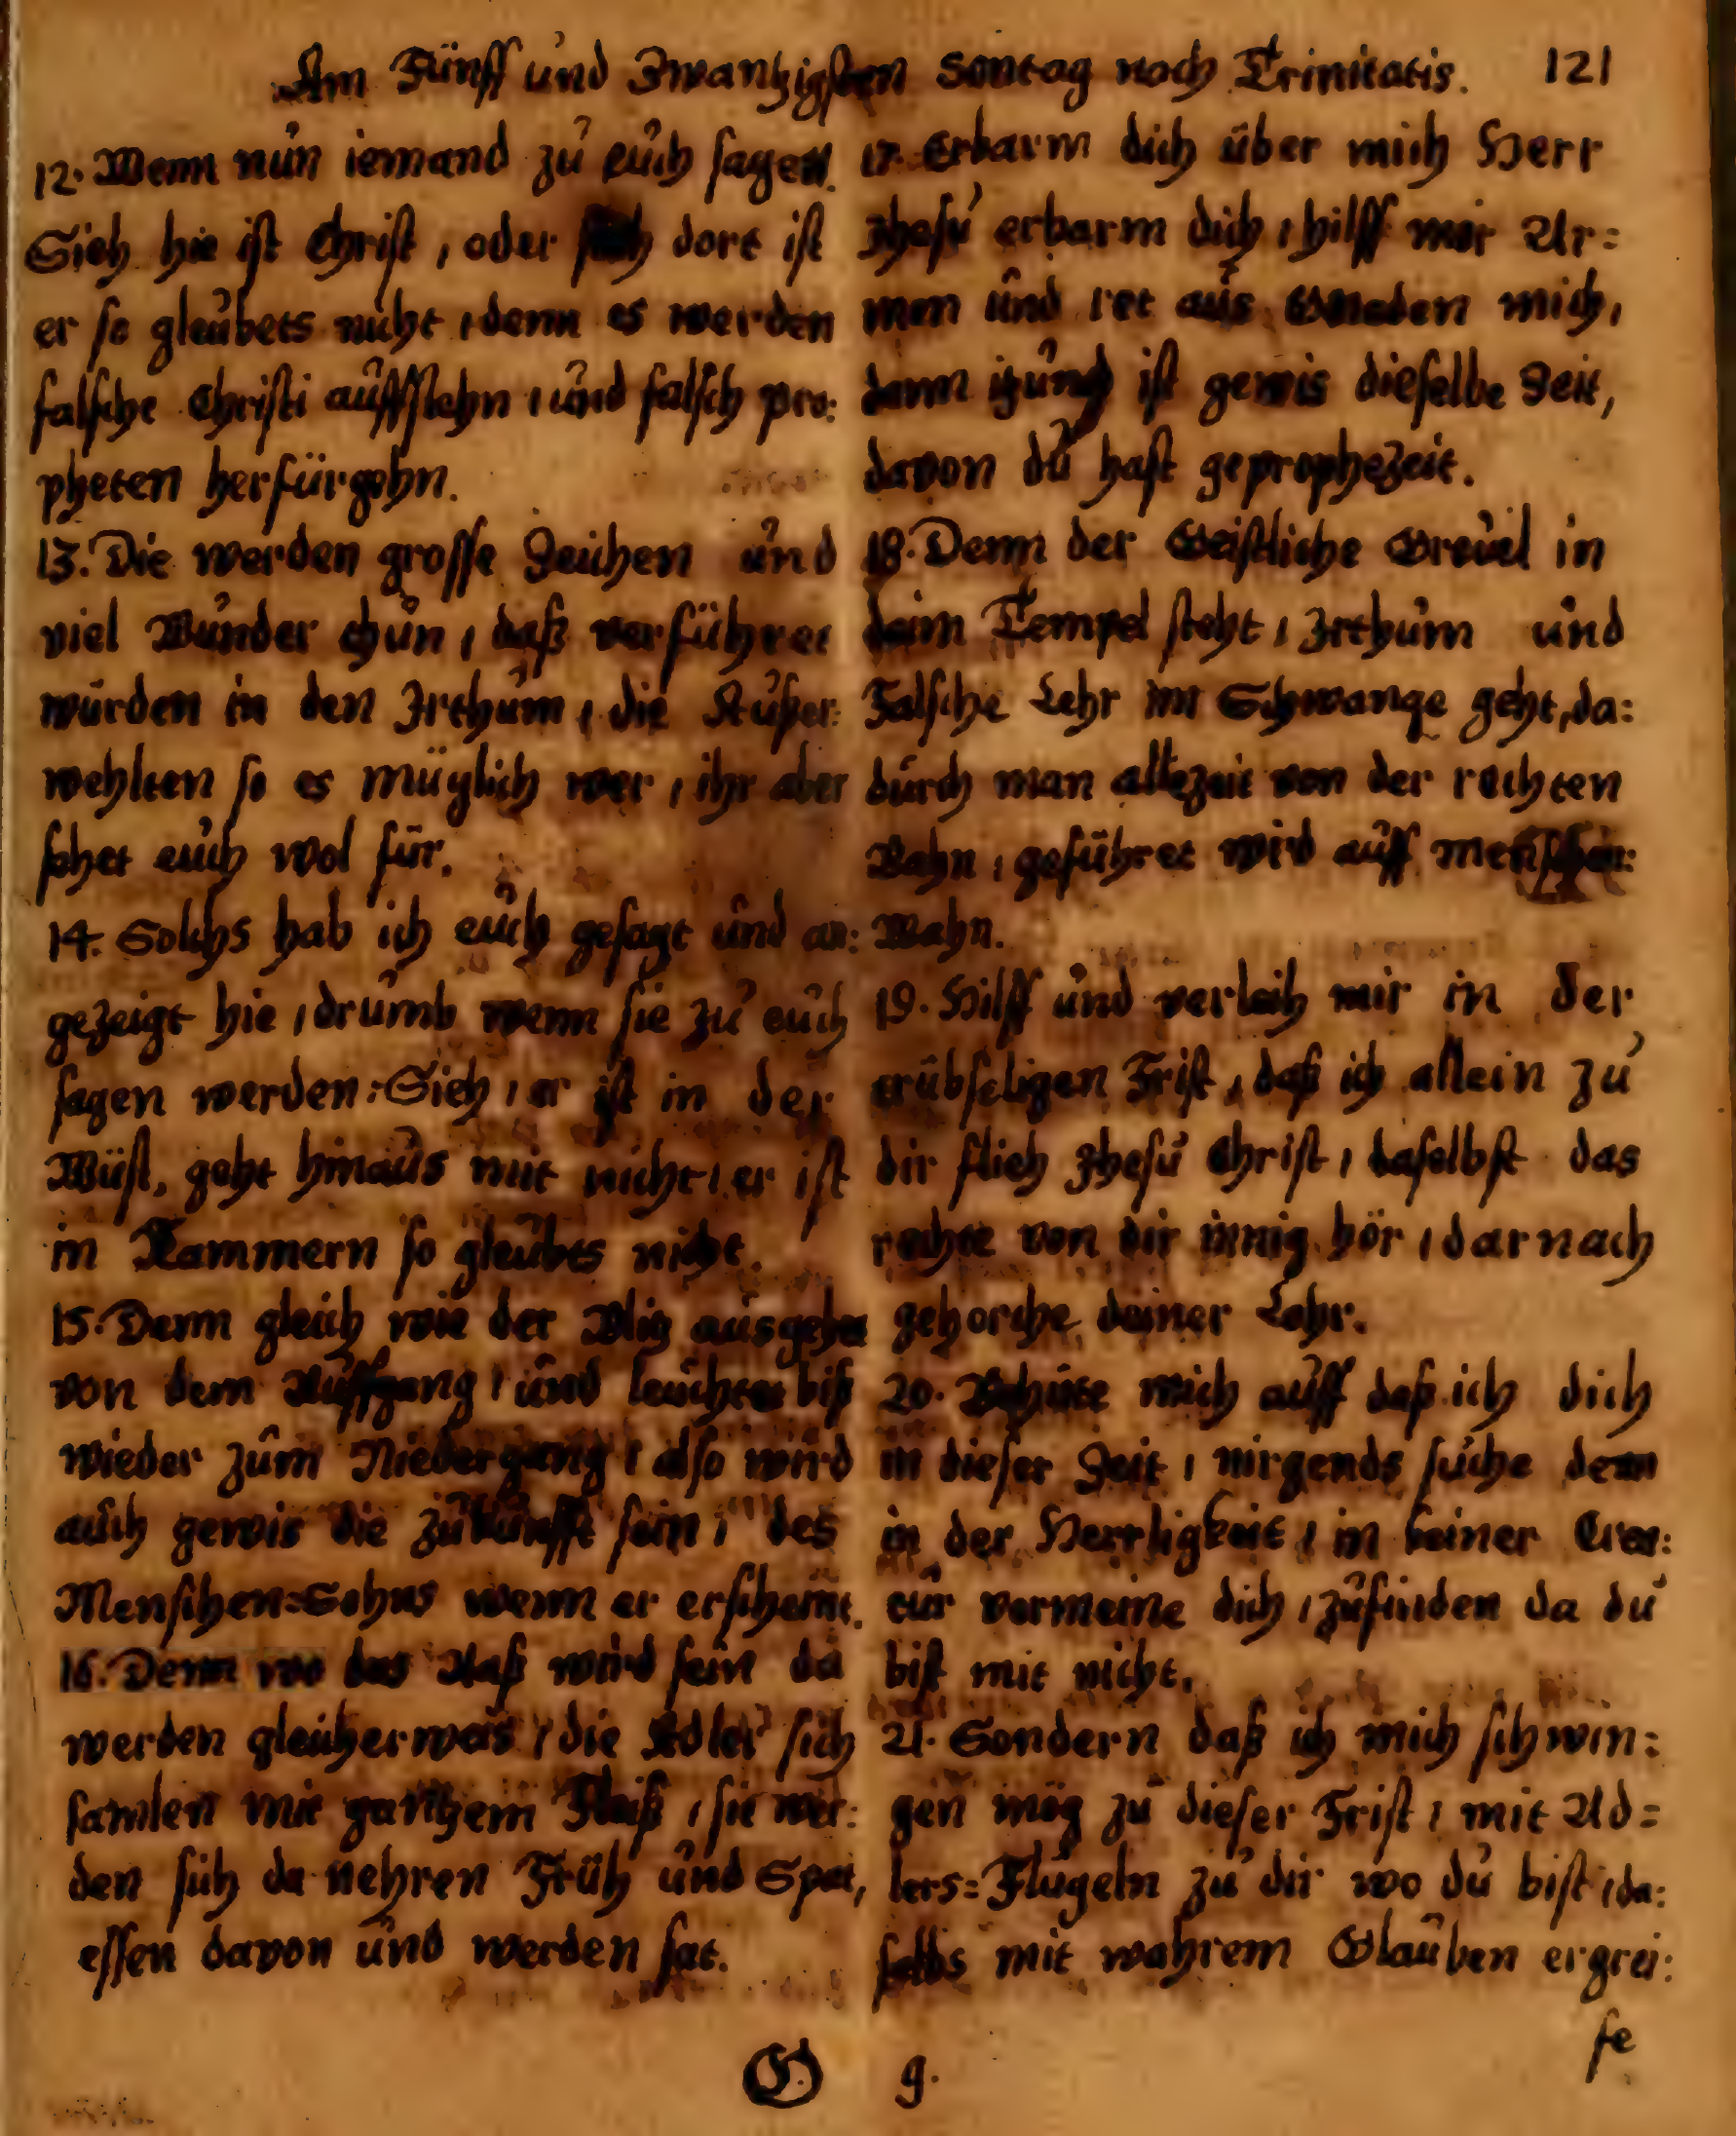 Am Fünff und Zwantzigsten Sontag nach Trinitatis. 121
12. Wenn nun iemand zu euch sagen
Sieh hie ist Christ, oder sieh dort ist
er so gleubets nicht, denn es werden
falsche Christi auffstehn, und falsch pro:
pheten herfürgehn.
13. Die werden grosse Zeichen und
viel Wunder thun, daß verführet
würden in den Irthum, die Außer:
wehlten so es müglich wer, ihr aber
sehet euch wol für.
14. Solchs hab ich euch gesagt und an:
gezeigt hie, drumb wenn sie zu euch
sagen werden: Sieh, er ist in der
Wüst, geht hinaus mit nicht, er ist
in Kammern so gleubts nicht.
15. Denn gleich wie der Blitz ausgehet
von dem Auffgang, und leuchtet biß
wieder zum Niedergang, also wird
auch gewis die zukunfft sein, des
Menschen=Sohns wenn er erscheint.
16. Denn wo das Aaß wird sein da
werden gleicherweis, die Adler sich
samlen mit gantzem Fleiß, sie wer:
den sich da nehren Früh und Spat,
essen davon und werden sat.
17. Erbarm dich über mich Herr
Jhesu erbarm dich, hilff mir Ar=
men und ret aus Gnaden mich,
dann itzund ist gewis dieselbe Zeit,
davon du hast geprophezeit.
18. Denn der Geistliche Greuel in
deim Tempel steht, Irthum und
Falsche Lehr im Schwange geht, da:
durch man allezeit von der rechten
Bahn, geführet wird auff menschen:
Wahn.
19. Hilff und verleih mir in der
trübseligen Frist, daß ich allein zu
dir flieh Jhesu Christ, daselbst das
rechte von dir innig hör, darnach
gehorche deiner Lehr.
20. Behüte mich auff daß ich dich
in dieser Zeit, nirgends suche denn
in der Herrligkeit, in keiner Crea:
tur vermeine dich, zufinden da du
bist mit nicht.
21. Sondern daß ich mich schwin:
gen mög zu dieser Frist, mit Ad=
lers=Flügeln zu dir wo du bist, da:
selbs mit wahrem Glauben ergrei:
fe
G g.